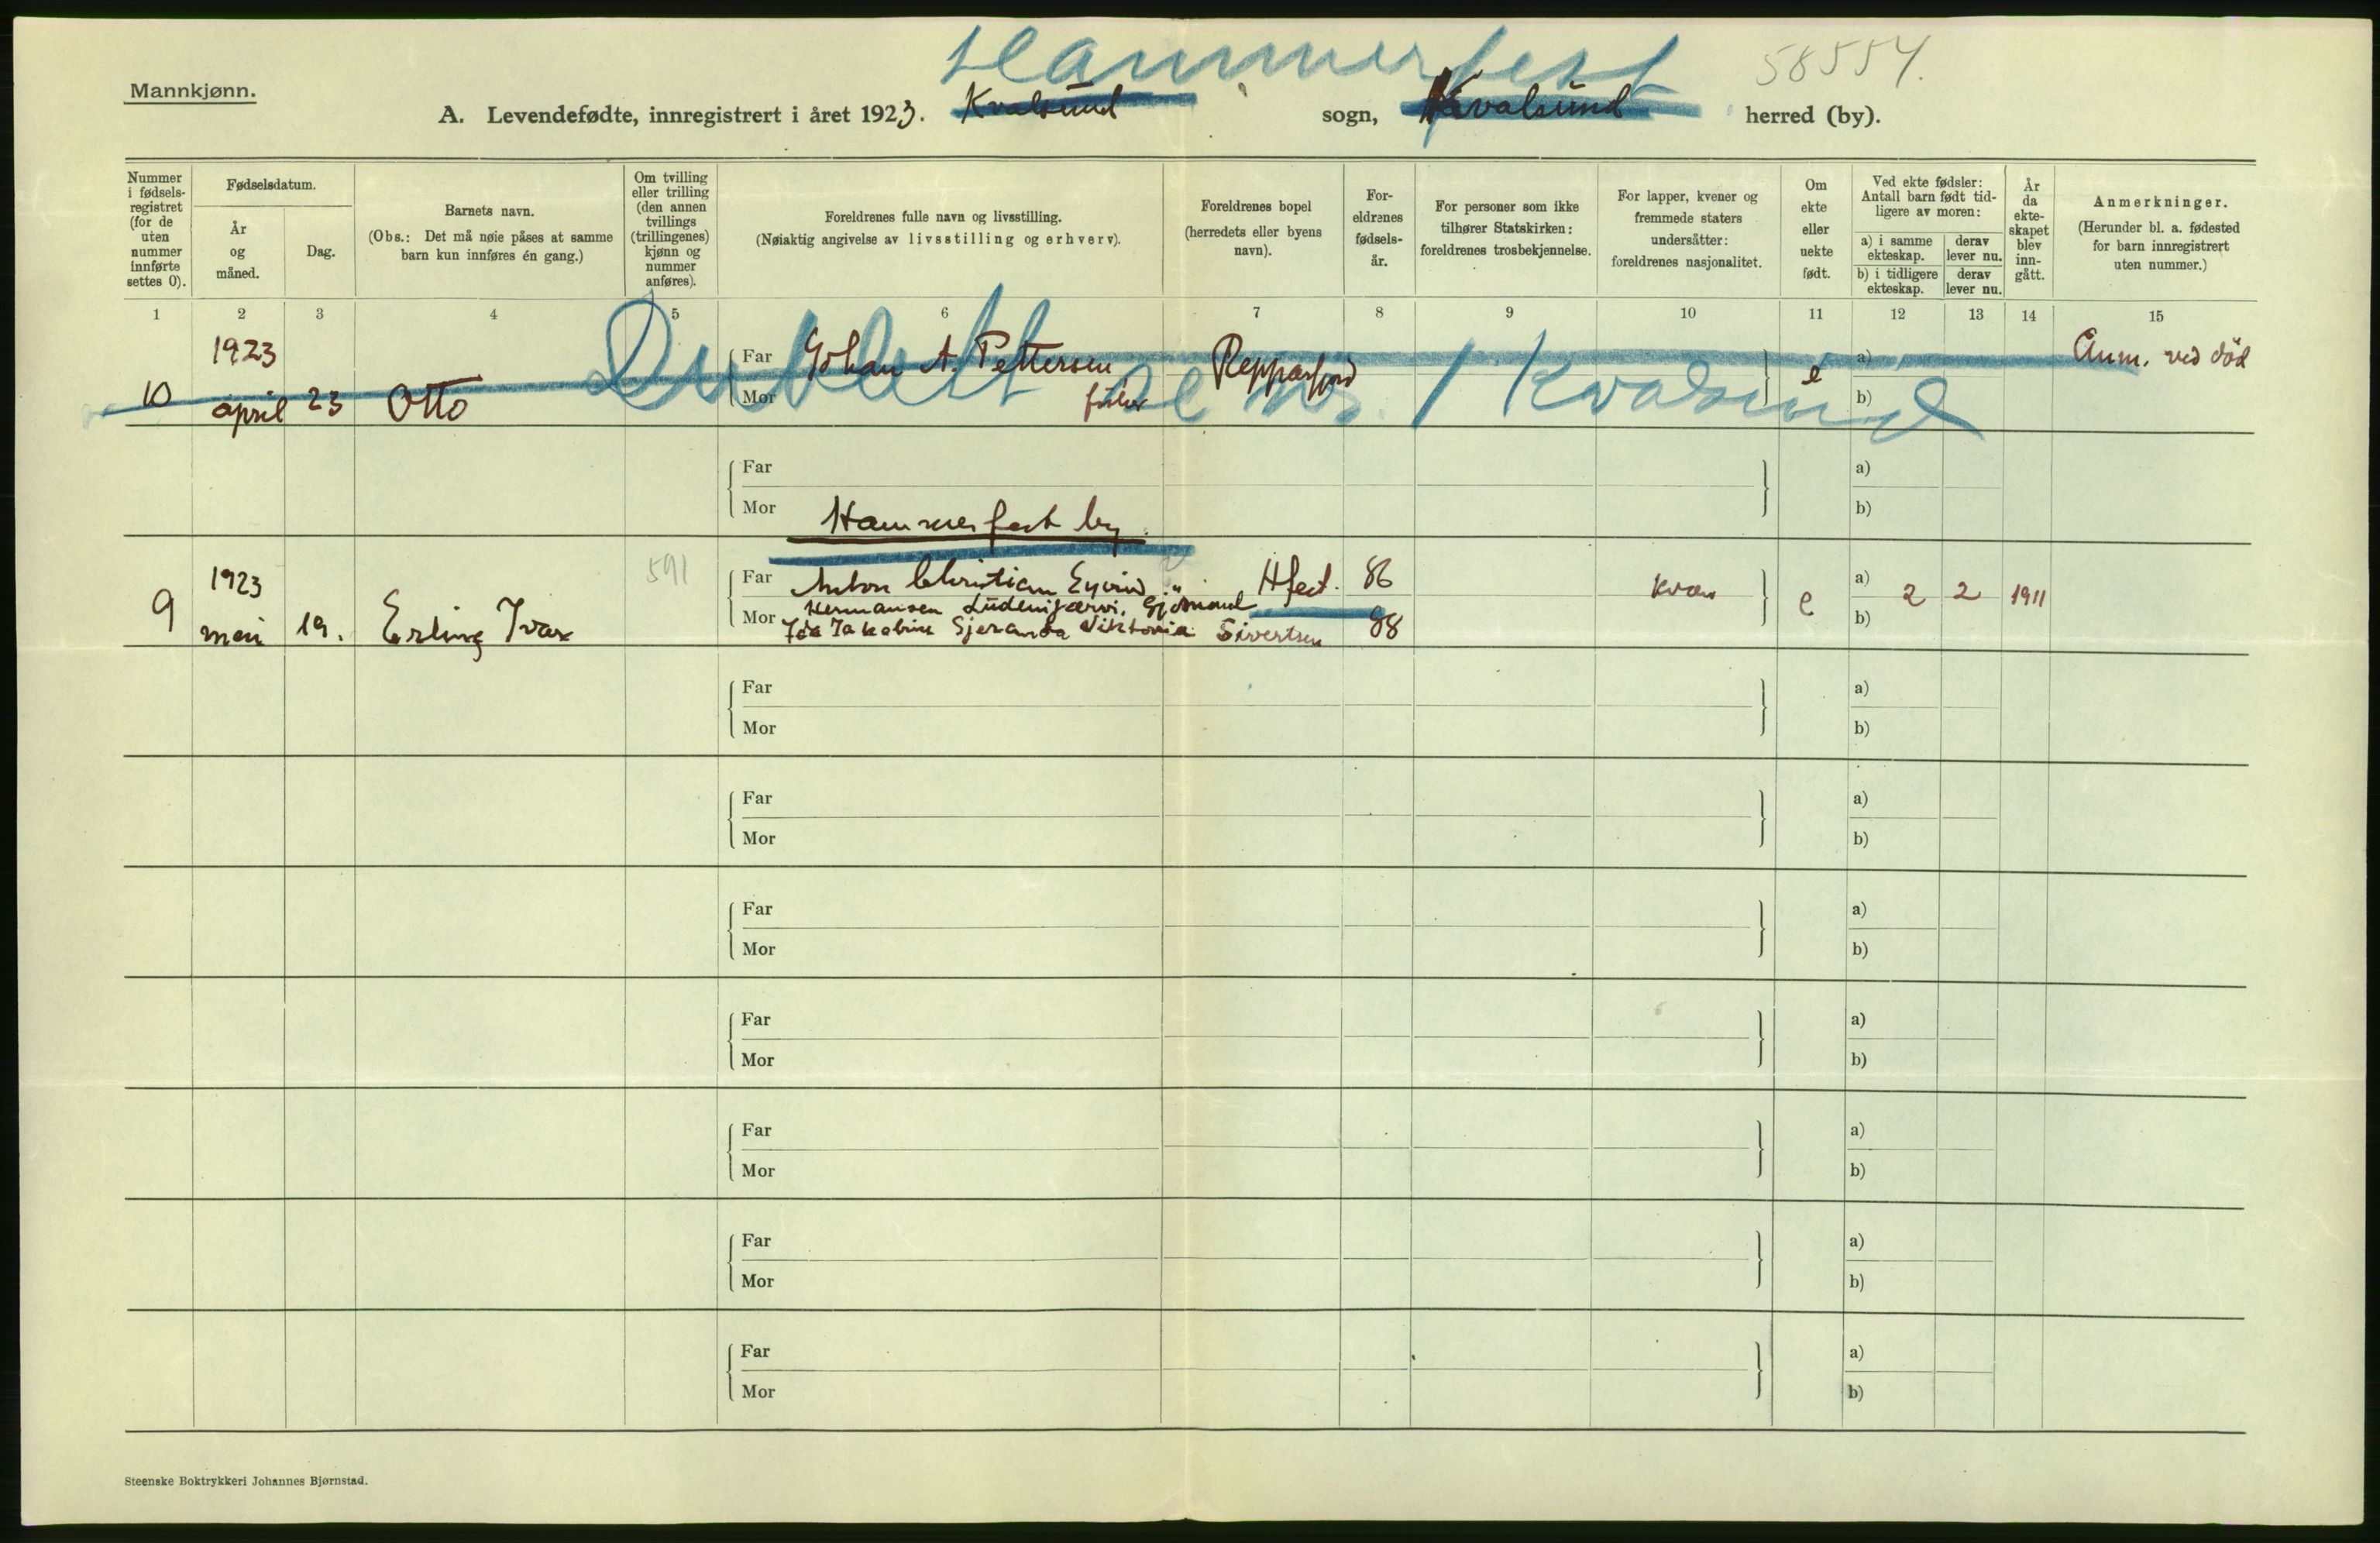 Hammerfest
58554.
Mannkjønn.
A. Levendefødte, innregistrert i året 1923. Kvalsund sogn, Kvalsund herred (by).
Nummer i fødselsregistret (for de uten nummer innførte settes 0).
Fødselsdatum.
År og måned.
Dag.
Barnets navn.
(Obs.: Det må nøie påses at samme barn kun innføres én gang.)
Om tvilling eller trilling (den annen tvillings (trillingenes) kjønn og nummer anføres).
Foreldrenes fulle navn og livsstilling.
(Nøiaktig angivelse av livsstilling og erhverv).
Foreldrenes bopel (herredets eller byens navn).
Foreldrenes fødselsår.
For personer som ikke tilhører Statskirken: foreldrenes trosbekjennelse.
For lapper, kvener og fremmede staters undersåtter: foreldrenes nasjonalitet.
Om ekte eller uekte født.
Ved ekte fødsler: Antall barn født tidligere av moren:
a) i samme ekteskap. derav lever nu.
b) i tidligere ekteskap. derav lever nu.
År da ekteskapet blev inngått.
Anmerkninger.
(Herunder bl. a. fødested for barn innregistrert uten nummer.)
1 2 3 4 5 6 7 8 9 10 11 12 13 14 15
Dublett se nr. 1 Kvalsund
10 1923 april 23 Otto Far Johan A. Pettersen Repparfjord e a) Anm. ved död
Mor b)
Far a)
Mor b)
Hammerfest by
9 1923 mai 19. Erling Ivar 591 Far Anton Christian Eyvind Hfest. 86 kvæn e a) 2 2 1911
Hermansen
Mor Ida Jakobine Viktoria Sivertsen 88 b)
Far a)
Mor b)
Far a)
Mor b)
Far a)
Mor b)
Far a)
Mor b)
Far a)
Mor b)
Far a)
Mor b)
Far a)
Mor b)
Steenske Boktrykkeri Johannes Bjørnstad.